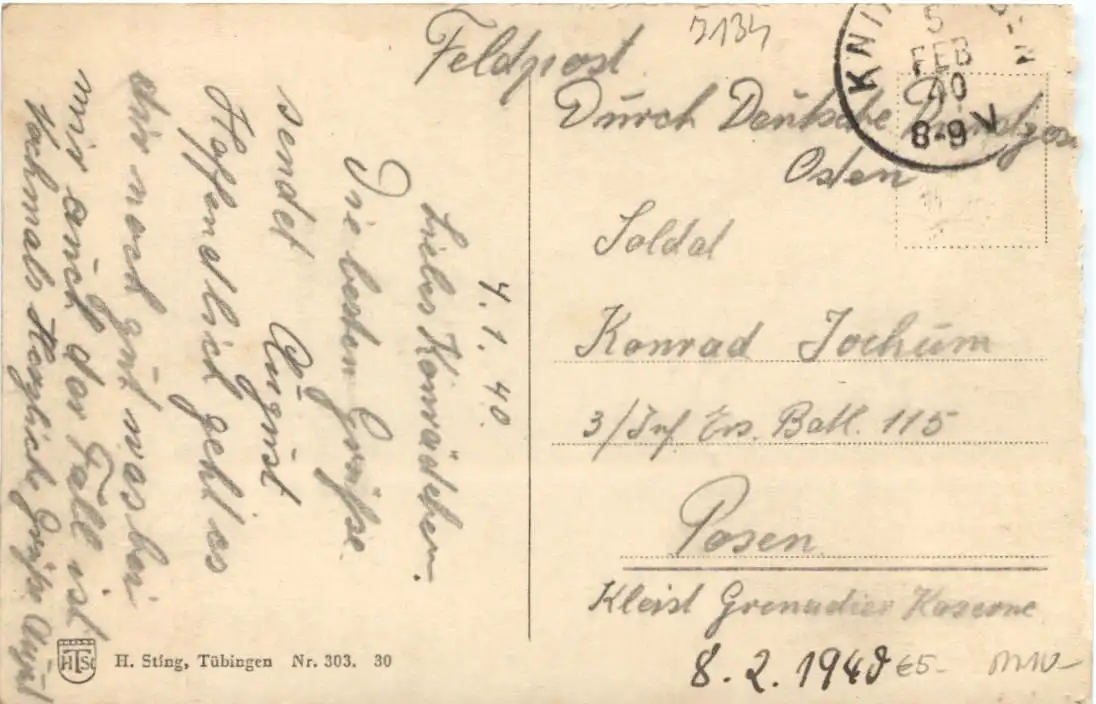 Feldpost
7134
KNI
5
FEB
40
8-9 V
Durch Deutsche
Osten
Soldat
Konrad Jochum
3/Inf Ers. Batl. 115
Posen
Kleist Grenadier Kaserne
8.2.1940
€5-
4.1.40.
Liebes Konrädchen.
Die besten Grüße
sendet August
Hoffendlich geht es
dir noch gut was bei
mir auch der Fall ist
Nochmals Herzliche Grüße August
HTSt
H. Sting, Tübingen Nr. 303. 30